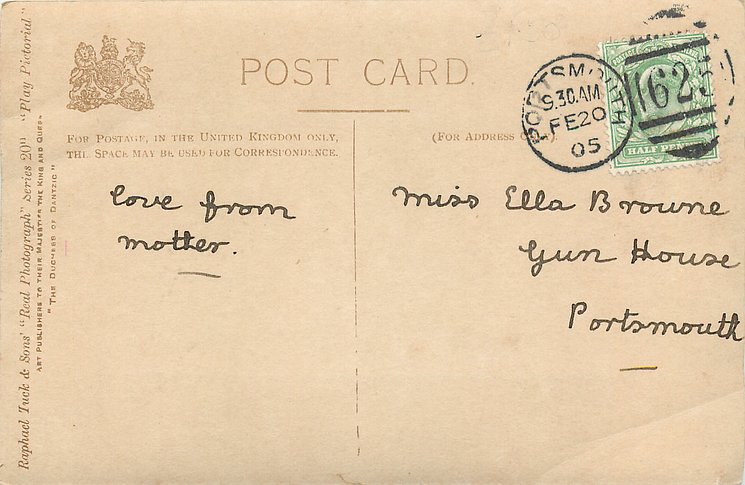 POST CARD.
FOR POSTAGE, IN THE UNITED KINGDOM ONLY,
THE SPACE MAY BE USED FOR CORRESPONDENCE.
(FOR ADDRESS
PORTSMOUTH
9.30.AM
FE20
05
625
HALF PENNY
love from
motter.
Miss Ella Browne
Gun House
Portsmouth
Raphael Tuck & Sons' "Real Photograph" Series 20 "Play Pictorial"
ART PUBLISHERS TO THEIR MAJESTIES THE KING AND QUEEN
"THE DUCHESS OF DANTZIC"